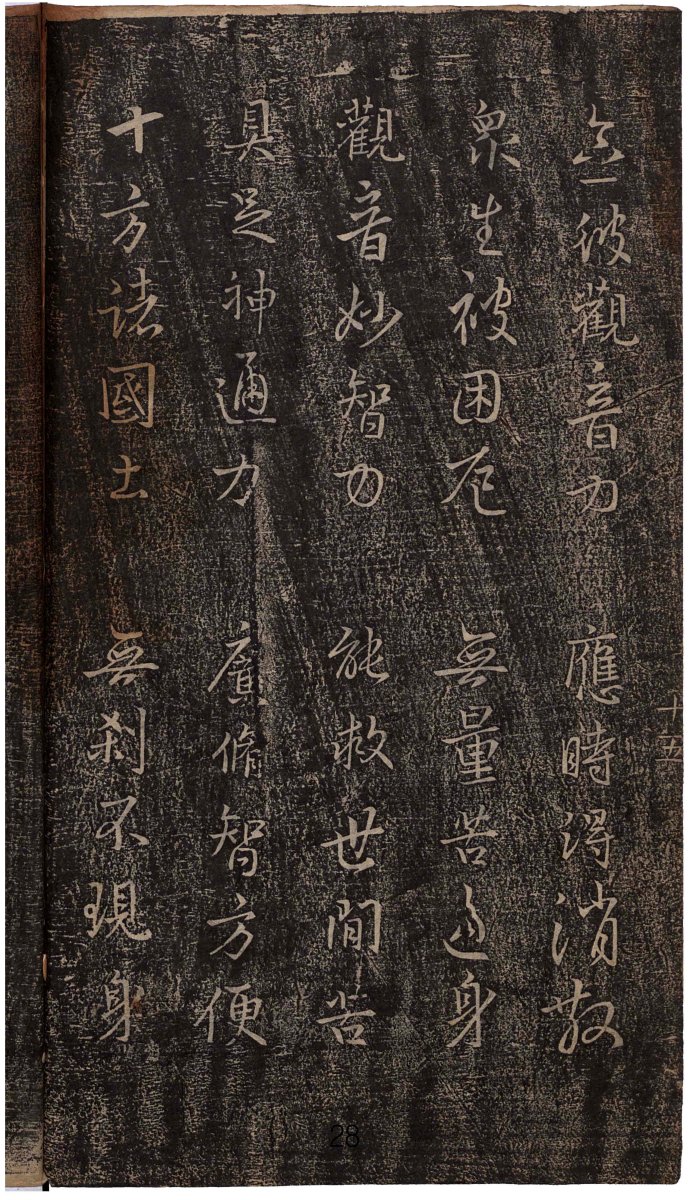 十五
念彼觀音力 應時得消散
衆生被困厄 無量苦逼身
觀音妙智力 能救世間苦
具足神通力 廣脩智方便
十方諸國土 無刹不現身
28